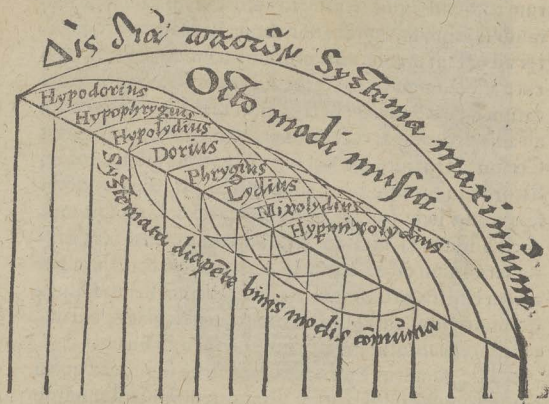 Δὶς διὰ πασῶν Systema maximum
Octo modi musici
Hypodorius
Hypophrygius
Hypolydius
Dorius
Phrygius
Lydius
Mixolydius
Hypermixolydius
Systemata diapēte binis modis cōmūma